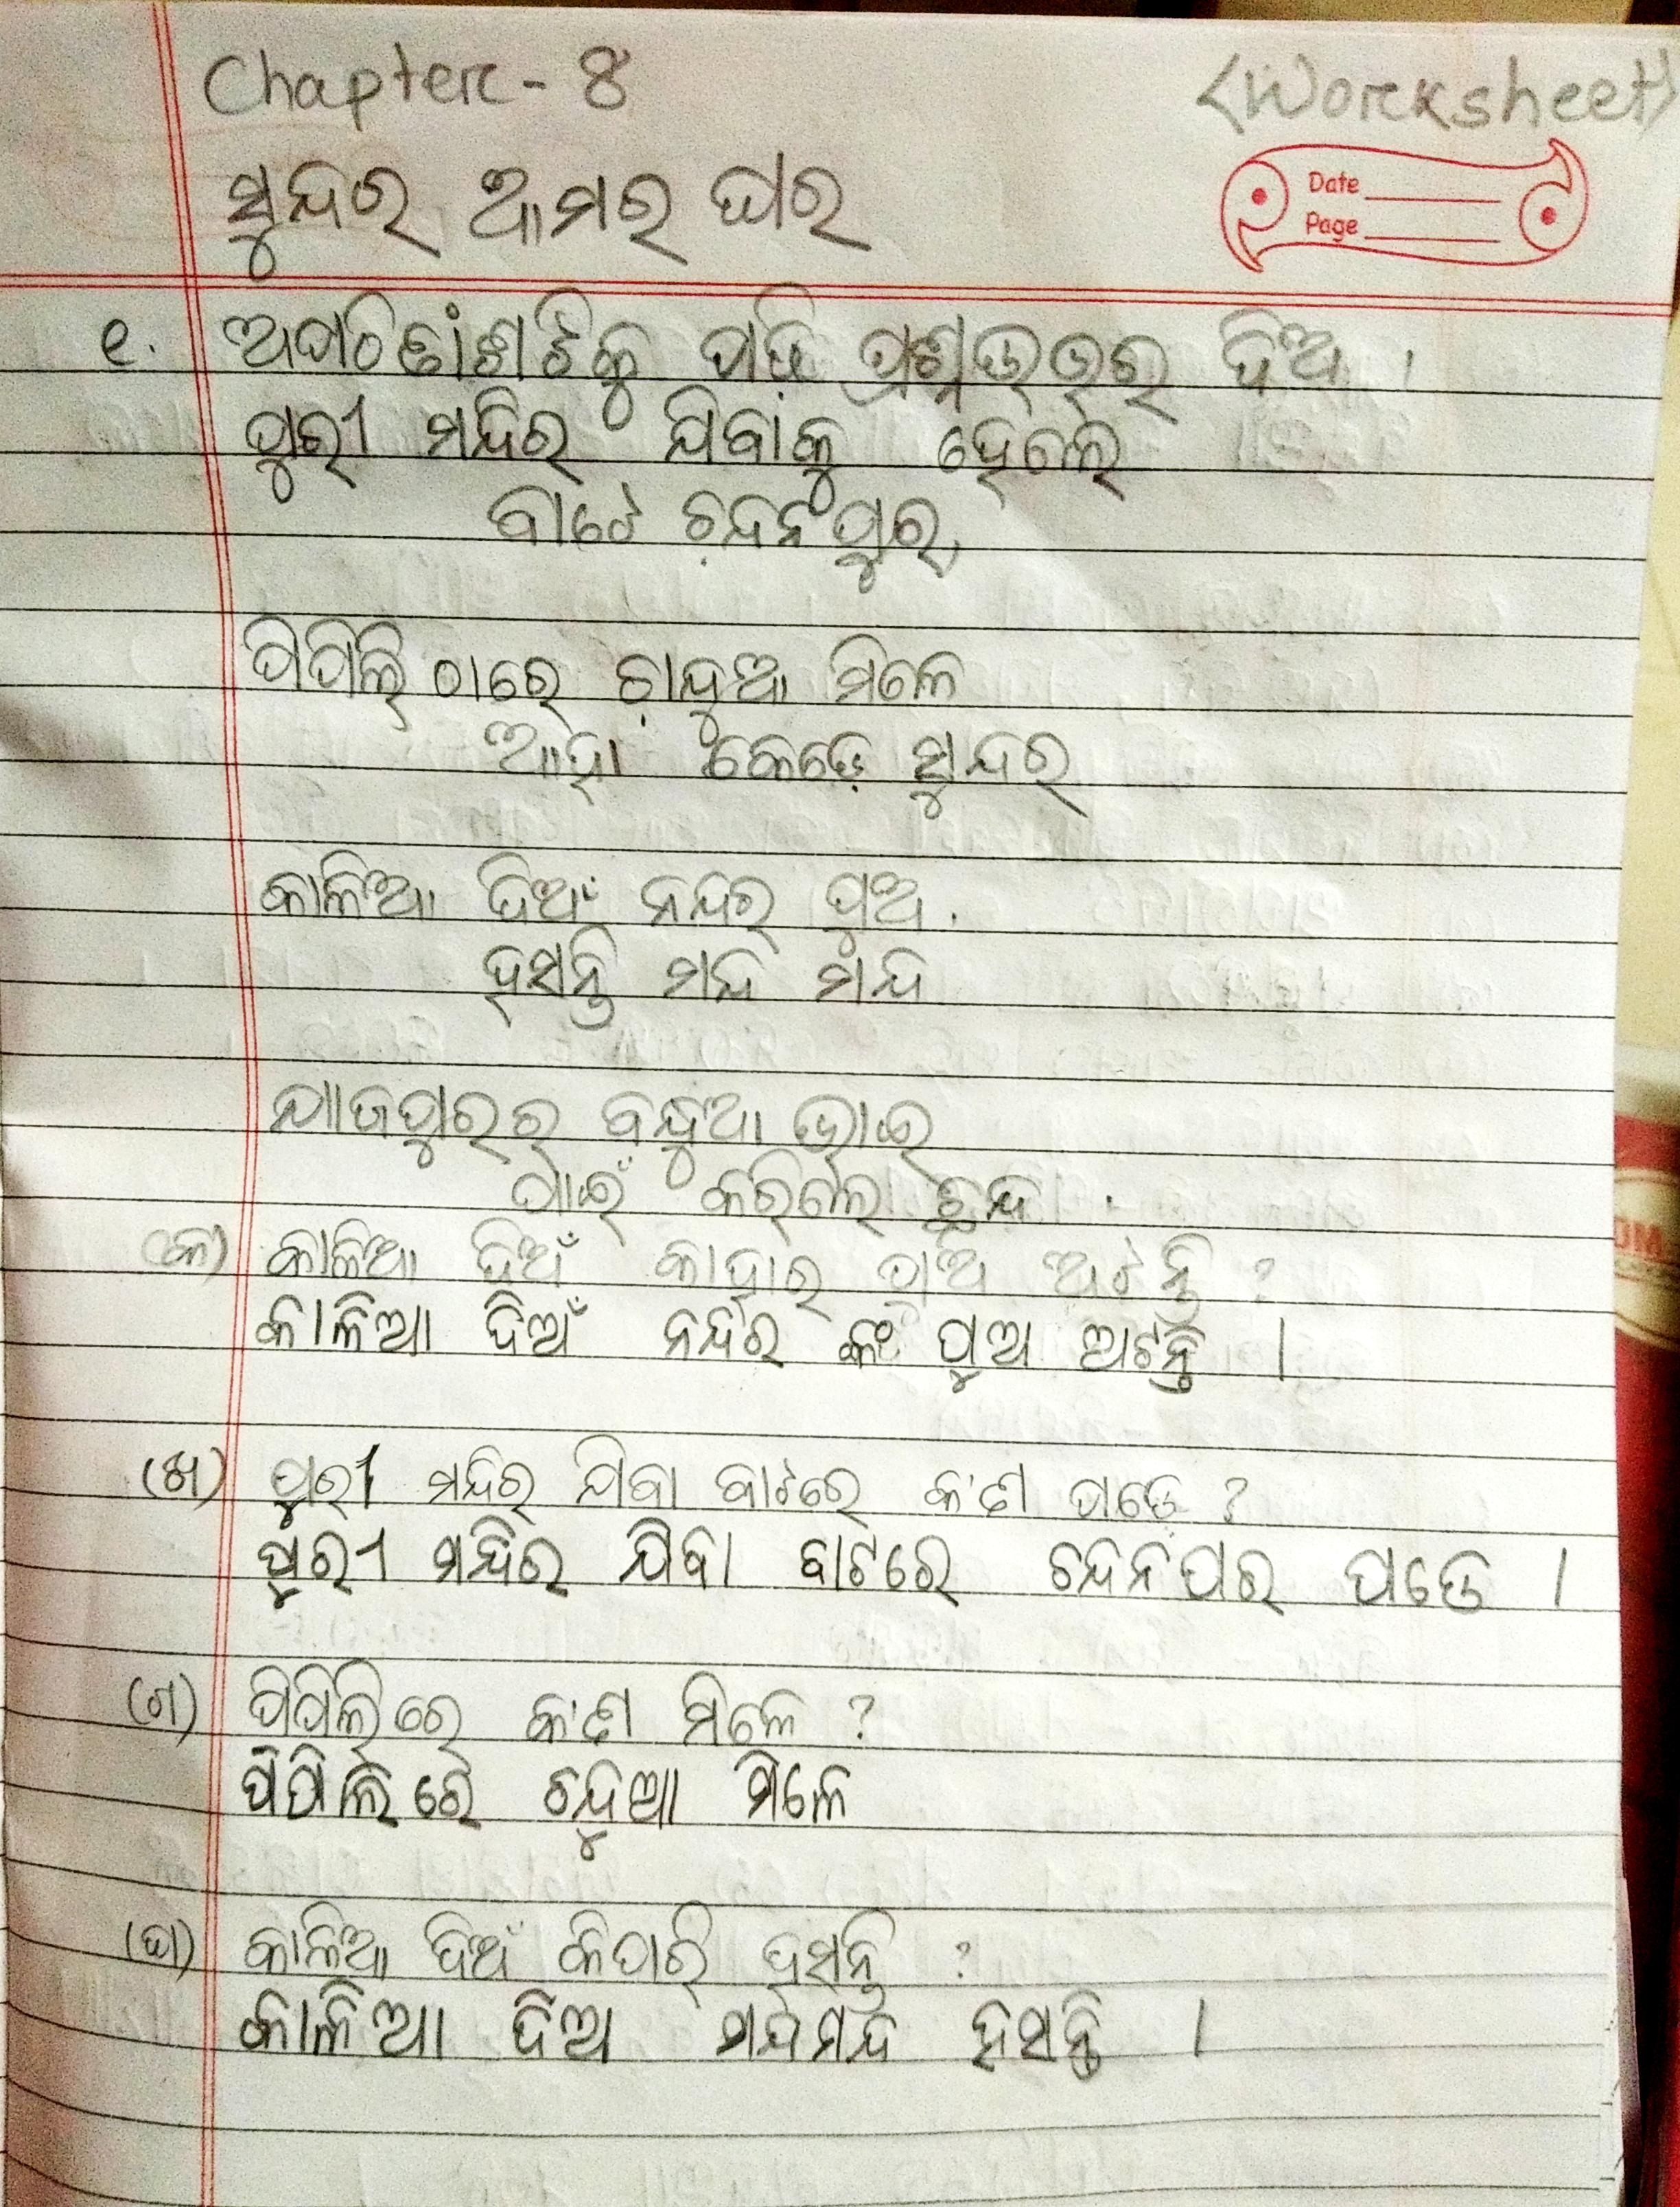 Chapter - 8
<Worksheet>
Date
Page
ସୁନ୍ଦର ଆମର ଘର
୧. ଅପଠିତାଂଶଟିକୁ ପଢ଼ି ପ୍ରଶ୍ନଉତ୍ତର ଦିଅ ।
ପୁରୀ ମନ୍ଦିର ଯିବାକୁ ହେଲେ
ବାଟେ ଚନ୍ଦନପୁର,
ପିପିଲି ଠାରେ ଚାନ୍ଦୁଆ ମିଳେ
ଆହା କେଡ଼େ ସୁନ୍ଦର
କାଳିଆ ଦିଅଁ ନନ୍ଦର ପୁଅ .
ହସନ୍ତି ମନ୍ଦ ମନ୍ଦ
ଯାଜପୁରର ବନ୍ଧୁଆ ଭାଇ
ପାଇଁ କରିଲେ ଛନ୍ଦ .
(କ) କାଳିଆ ଦିଅଁ କାହାର ପୁଅ ଅଟନ୍ତି ?
କାଳିଆ ଦିଅଁ ନନ୍ଦର ପୁଅ ଅଟନ୍ତି ।
(ଖ) ପୁରୀ ମନ୍ଦିର ଯିବା ବାଟରେ କ'ଣ ପଡେ ?
ପୁରୀ ମନ୍ଦିର ଯିବା ବାଟରେ ଚନ୍ଦନପର ପଡେ ।
(ଗ) ପିପିଲିରେ କ'ଣ ମିଳେ ?
ପିପିଲିରେ ଚନ୍ଦୁଆ ମିଳେ
(ଘ) କାଳିଆ ଦିଅଁ କିପରି ହସନ୍ତି ?
କାଳିଆ ଦିଅ ମନ୍ଦମନ୍ଦ ହସନ୍ତି ।